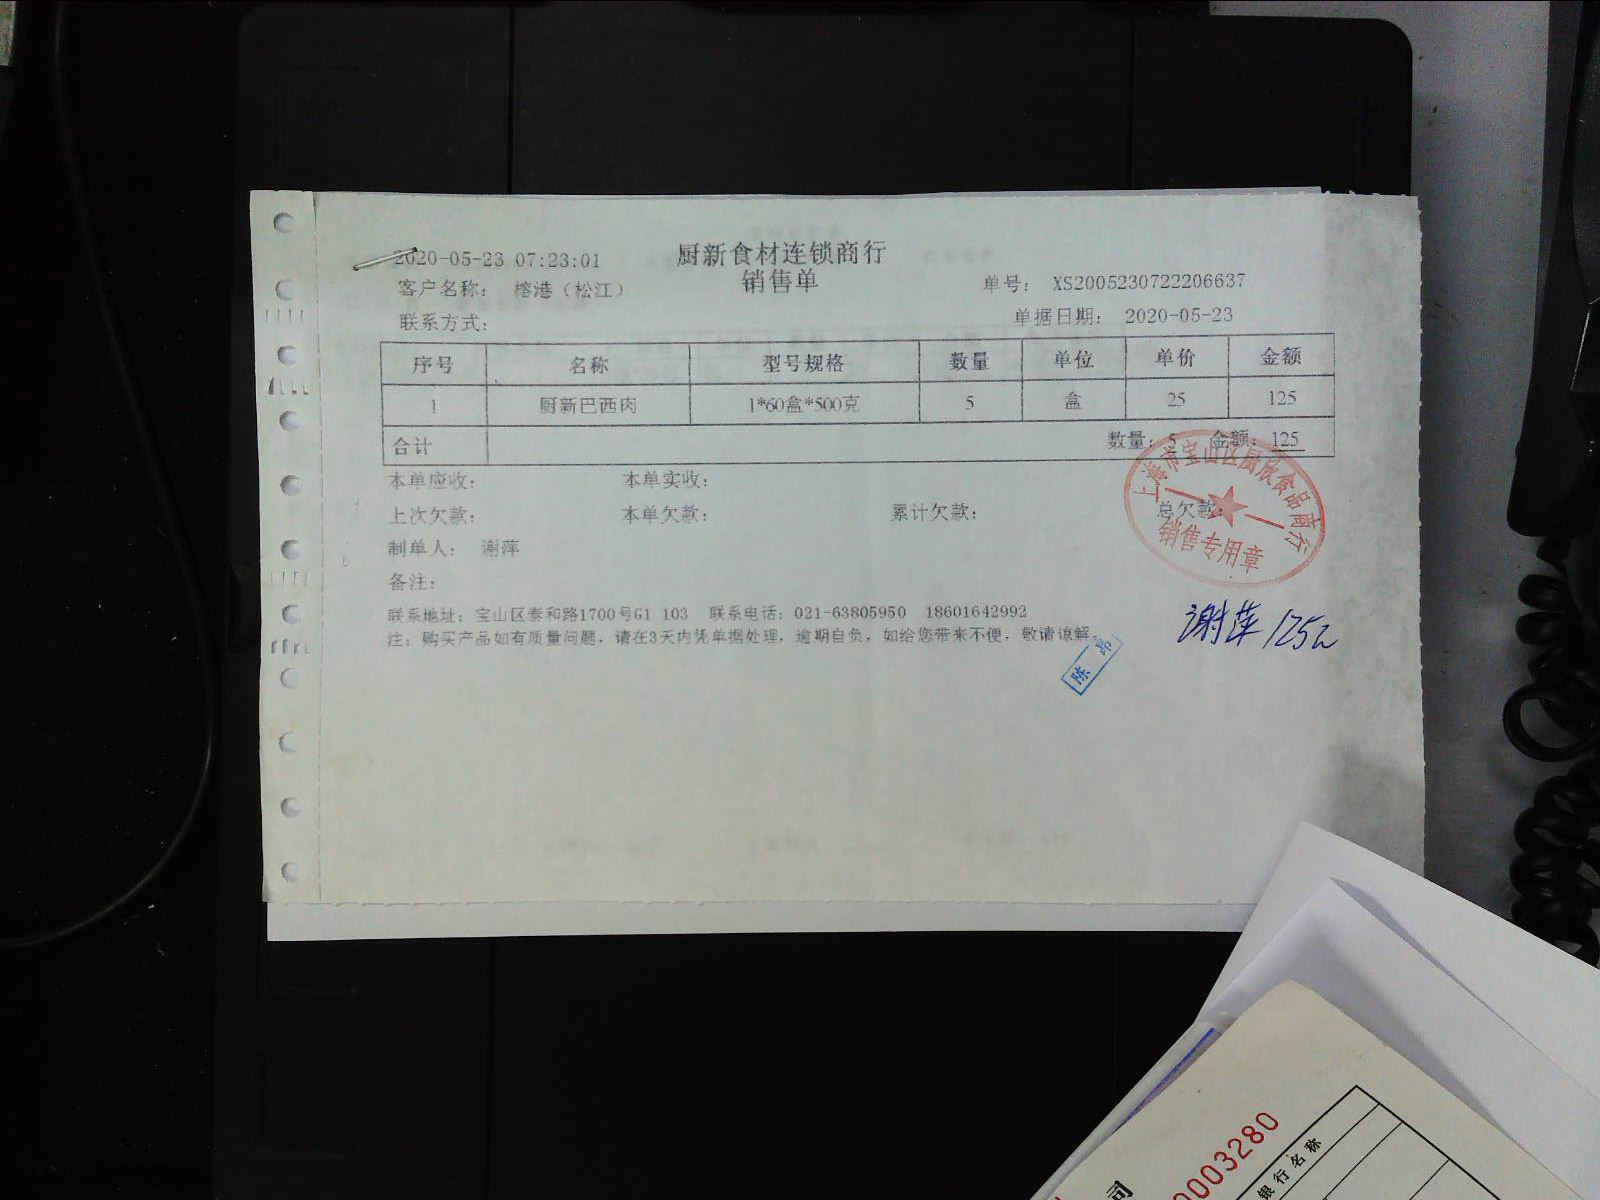 2020-05-23 07:23:01
厨新食材连锁商行
销售单
客户名称： 榕港（松江）
单号： XS2005230722206637
联系方式：
单据日期： 2020-05-23
序号 名称 型号规格 数量 单位 单价 金额
1 厨新巴西肉 1*60盒*500克 5 盒 25 125
合计 数量：5 金额：125
本单应收： 本单实收：
上次欠款： 本单欠款： 累计欠款： 总欠款：
制单人： 谢萍
备注：
联系地址：宝山区泰和路1700号G1 103 联系电话：021-63805950 18601642992
注：购买产品如有质量问题，请在3天内凭单据处理，逾期自负，如给您带来不便，敬请谅解。
上海市宝山区厨欣食品商行
销售专用章
谢萍 125元
陈昂
0003280
银行名称
司